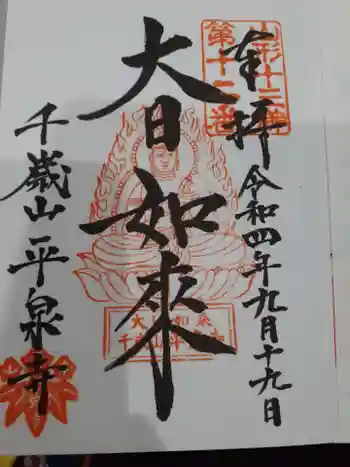 奉拝
山形十三佛
第十二番
令和四年九月十九日
大日如來
大日如来
千歳山平泉寺
千歳山平泉寺